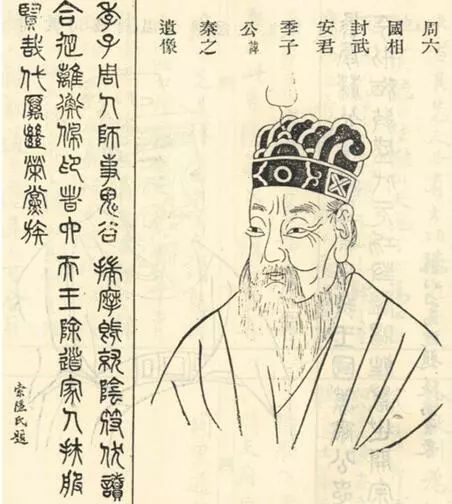 周六
國相
封武
安君
季子
公諱
秦之
遺像
季子周人師事鬼谷 揣摩既就陰符伏讀
合從離衡佩印者六 天王除道家人扶服
賢哉代厲繼榮黨族
索隱氏題